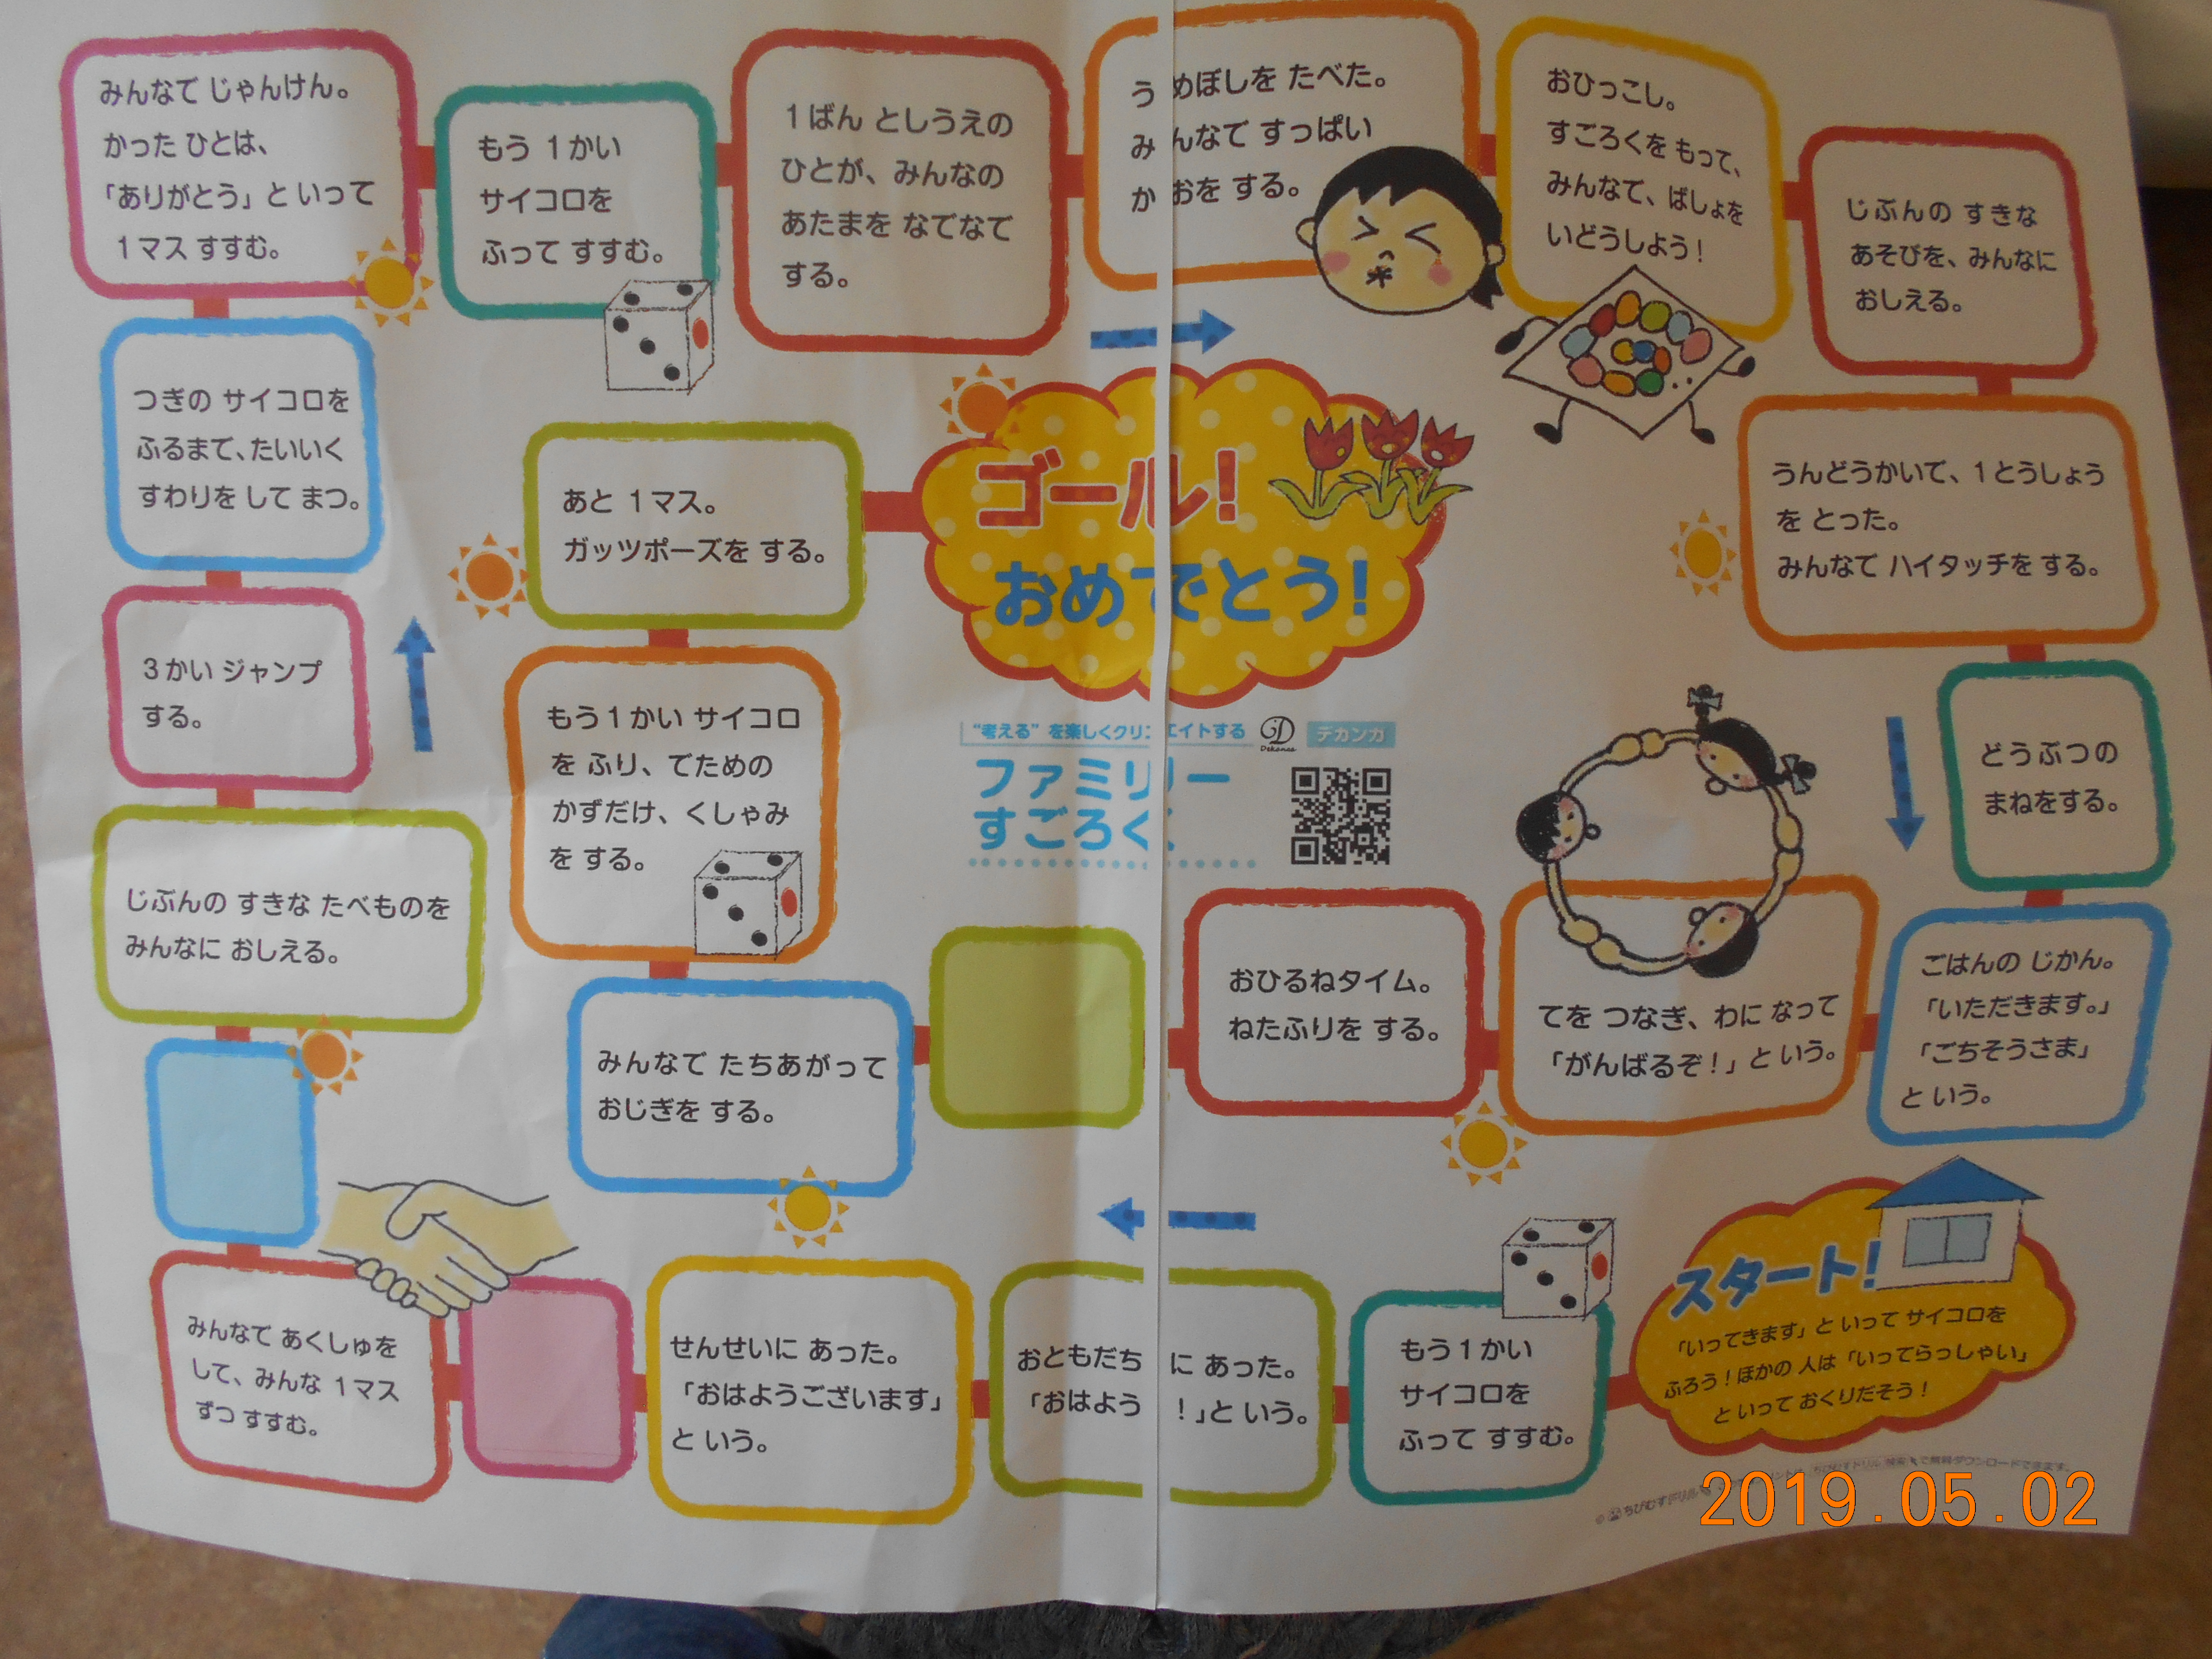 みんなで じゃんけん。
かった ひとは、
「ありがとう」 と いって
1マス すすむ。
もう 1かい
サイコロを
ふって すすむ。
1ばん としうえの
ひとが、みんなの
あたまを なでなで
する。
うめぼしを たべた。
みんなで すっぱい
かおを する。
おひっこし。
すごろくを もって、
みんなで、ばしょを
いどうしよう!
じぶんの すきな
あそびを、みんなに
おしえる。
つぎの サイコロを
ふるまで、たいいく
すわりを して まつ。
あと 1マス。
ガッツポーズを する。
ゴール!
おめでとう!
うんどうかいで、1とうしょう
を とった。
みんなで ハイタッチを する。
3かい ジャンプ
する。
もう1かい サイコロ
を ふり、でための
かずだけ、くしゃみ
を する。
"考える" を楽しくクリエイトする
Dekanca
デカンカ
ファミリー
すごろく
どうぶつの
まねをする。
じぶんの すきな たべものを
みんなに おしえる。
みんなで たちあがって
おじぎを する。
おひるねタイム。
ねたふりを する。
てを つなぎ、わに なって
「がんばるぞ!」 と いう。
ごはんの じかん。
「いただきます。」
「ごちそうさま」
と いう。
みんなで あくしゅを
して、みんな 1マス
ずつ すすむ。
せんせいに あった。
「おはようございます」
と いう。
おともだちに あった。
「おはよう!」と いう。
もう1かい
サイコロを
ふって すすむ。
スタート!
「いってきます」 と いって サイコロを
ふろう!ほかの 人は 「いってらっしゃい」
と いって おくりだそう!
© ちびむすドリル
ちびむすドリル 検索 で無料ダウンロードできます。
2019.05.02